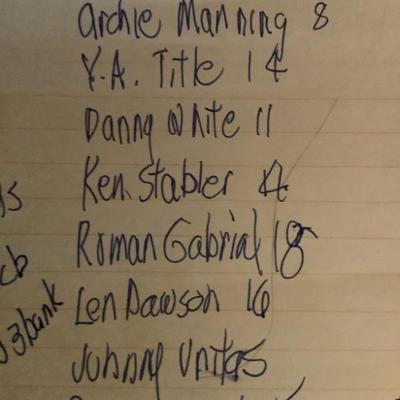 Archie Manning 8
Y.A. Title 14
Danny White 11
Ken Stabler
Roman Gabrial 18
Len Dawson 16
Johnny Unitas
cb
3bank